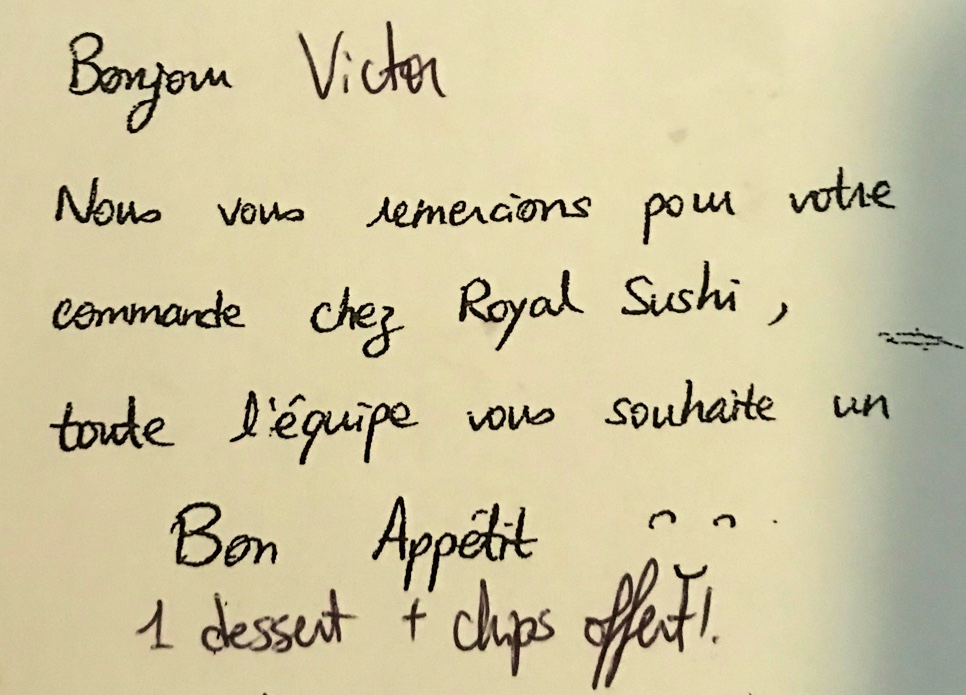 Bonjour Victor
Nous vous remercions pour votre
commande chez Royal Sushi,
toute l'équipe vous souhaite un
Bon Appétit
1 dessert + chips offert!